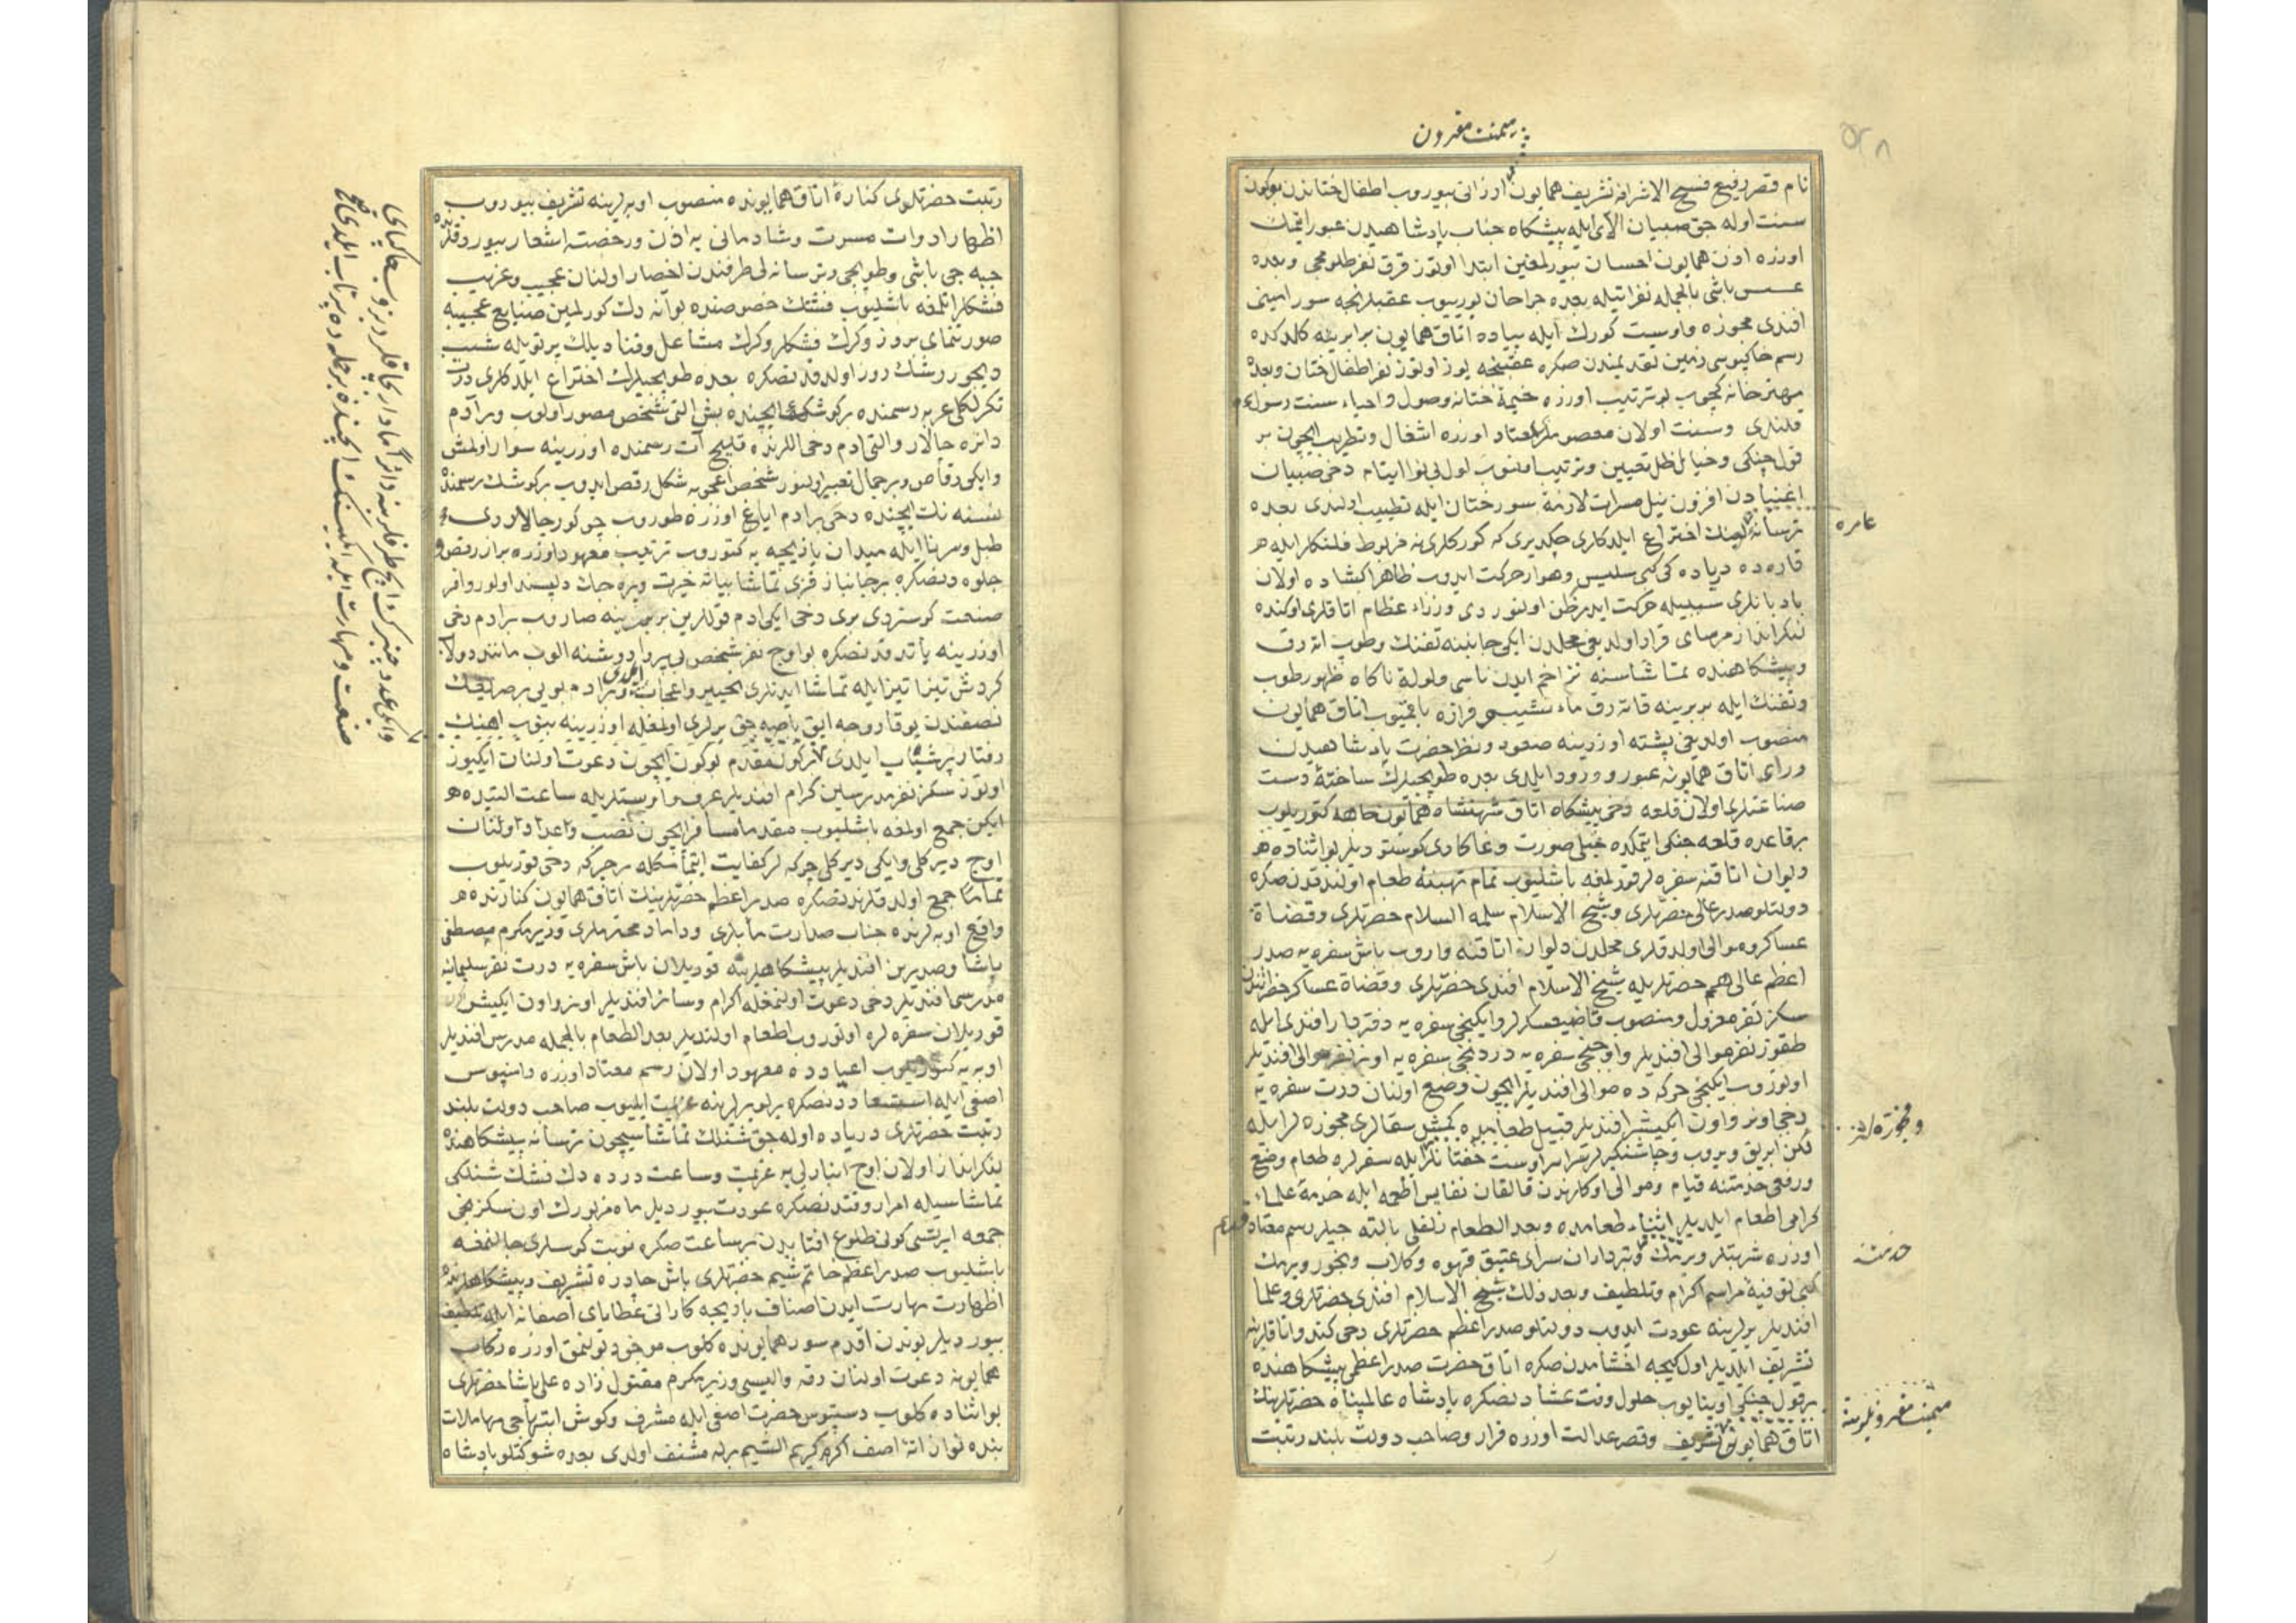 پر میمنت مقرون
نام قصر رفیع فسیح الاشرافه تشریف همایون ارزانی بیوروب اطفال ختاندن بوکون
سنت اوله جق صبیان الای ایله پیشکاه جناب پادشاهیدن عبور ایتمك
اوزره اذن همایون احسان بیورلمغین ابتدا اوتوز قرق نفر طلومجی وبعده
عسس باشی بالجمله نفراتیله بعده جراحان یورییوب عقبلرنجه سور امینی
افندی مجوزه واوست کورك ایله پیاده اتاق همایون برابرینه کلدکده
رسم خاکبوسی زمین تقدیمندن صکره عقبنجه یوز اوتوز نفر اطفال ختان وبعده
مهترخانه کچوب بو ترتیب اوزره خیمۀ ختانه وصول واحیاء سنت رسول
قلندی وسنت اولان معصوملر معتاد اوزره اشغال وتطریب ایچون بر
قول چنکی وخیال ظل تعیین وترتیب اولنوب اول بی نوا ایتام دخی صبیان
اغنیادن افزون نیل مسرات لازمۀ سور ختان ایله تطییب اولندی بعده
ترسانه لینك اختراع ایلدکلری چکدیری که کورکلری نه مربوط فلنکلر ایله هر
قاره ده دریاده کی کبی سلیس وهموار حرکت ایدوب ظاهرا کشاده اولان
بادبانلری سببیله حرکت ایدر ظن اولنوردی وزراء عظام اتاقلری اوکنده
لنکرانداز مرسای قرار اولدیغی محلدن ایکی جانبنه تفنك وطوپ اته رق
وپیشکاهنده تماشاسنه تزاحم ایدن ناسی ولولۀ ناکاه ظهور طوپ
وتفنك ایله بربرینه قاته رق ماء نشیب وفرازه باقمیوب اتاق همایون
منصوب اولدیغی پشته اوزرینه صعود ونظر حضرت پادشاهیدن
ورای اتاق همایونه عبور وورود ایلدی بعده طوپجیلرك ساختۀ دست
صناعتلری اولان قلعه دخی پیشکاه اتاق شهنشاه همایون جاهه کتوریلوب
برقاعده قلعه جنکی ایتمکده خیلی صورت وغاکاری کوستردیلر بو اثناده
دیوان اتاقنه سفره لر قورلمغه باشلیوب تمام تهیئۀ طعام اولندقدن صکره
دولتلو صدر عالی حضرتلری وشیخ الاسلام سلمه السلام حضرتلری وقضاة
عساکر وموالی اولدقلری محلدن دیوان اتاقنه واروب باش سفره یه صدر
اعظم عالی همم حضرتلریله شیخ الاسلام افندی حضرتلری وقضاة عساکر حضراتندن
سکز نفر معزول ومنصوب قاضیعسکرلر وایکنجی سفره یه دفتردار افندی ایله
طقوز نفر موالی افندیلر واوچنجی سفره یه دردنجی سفره یه اونر نفر موالی افندیلر
اوتوروب ایکنجی چرکه ده موالی افندیلر ایچون وضع اولنان درت سفره یه
دخی اونر واون ایکیشر افندیلر قبیل طعامده کمش سقالری مجوزه لر ایله
لکن ابریق ویروب وچاشنکیرلر سراسر اوست خفتانلر ایله سفرلره طعام وضع
ورفعی خدمتنه قیام وموالی اوکلرندن قالقان نفایس اطعمه ایله خدمۀ علماء
کرامی اطعام ایلدیلر اثناء طعامده وبعد الطعام زلفلی بالته جیلر رسم معتاد قدیم
اوزره شربتلر ویرمك وتبرداران سرای عتیق قهوه وکلاب وبخور ویرمك
کبی توفیۀ مراسم اکرام وتلطیف وبعد ذلك شیخ الاسلام افندی حضرتلری وعلما
افندیلر یرلرینه عودت ایدوب دولتلو صدر اعظم حضرتلری دخی کند واتاقلرینه
تشریف ایلدیلر اول کیجه اخشامدن صکره اتاق حضرت صدر اعظمی پیشکاهنده
برقول چنکی اوینایوب حلول وقت عشادنصکره پادشاه عالمپناه حضرتلرینك
اتاق همایونی تشریف وقصر عدالت اوزره قرار وصاحب دولت بلند رتبت
عامره
وفجوزه لر
خدمتنه
میمنت مقرونلرینه
رتبت حضرتلری کنارۀ اتاق همایونده منصوب اوبه لرینه تشریف بیوروب
اظهار ادوات مسرت وشادمانی یه اذن ورخصت اشعار بیوردقلرنده
جبه جی باشی وطوپجی وترسانه لی طرفندن احضار اولنان عجیب وغریب
فشنکلر اتلمغه باشلیوب فشنك خصوصنده بوآنه دك کورلمین صنایع عجیبه
صورتنمای بروز وکرك فشنکلر وکرك مشاعل وقنادیلك پرتویله شب
دیجور رشك روز اولدقدنصکره بعده طوپجیلرك اختراع ایلدکلری درت
تکرلکلی عربه رسمنده برکوشك ایچنده بش التی شخص مصور اولوب وبر آدم
دائره چالار والتی ادم دخی اللرنده قلیج آت رسمنده اوزرینه سوار اولمش
وایکی رقاص وبر جمال تعبیر اولنور شخص اعجوبه شکل رقص ایدوب برکوشك رسمنده
نسنه نك ایچنده دخی برادم ایاغ اوزره طوروب چوکور چالاردی
طبل وسرنا ایله میدان بازیچه یه کتوروب ترتیب معهود اوزره براز رقص و
جلوه دنصکره برجانباز قزی تماشابیانه خیرت ویره جك دلپسند اولور وافر
صنعت کوستردی بری دخی ایکی ادم قوللرین بربرینه صاروب برادم دخی
اوزرینه یاتدقدنصکره بو اوچ نفر شخص بی پروا دوشنه الوب مانند دولاب
کردش تیزاتیز ایله تماشا ایدنلری تحییر واعجاب ایلدی وبرادم بویی بر صریغك
نصفندن یوقاروجه ایق باصه جق یرلری اولمغله اوزرینه بنوب اهنك
رفتار پرشتاب ایلدی برکون مقدم بوکون ایچون دعوت اولنان ایکیوز
اوتوز سکز نفر مدرسین کرام افندیلر عرف واوستلریله ساعت التیده
ایکن جمع اولمغه باشلیوب مقدما مسافر ایچون نصب واعداد اولنان
اوچ دیرکلی وایکی دیرکلی چرکه لر کفایت ایتمامکله برچرکه دخی قوریلوب
تماما جمع اولدقلرندنصکره صدر اعظم حضرتلرینك اتاق همایون کنارنده
واقع اوبه لرنده جناب صدارت مآبلری وداماد محترملری وزیر مکرم مصطفی
پاشا وصدرین افندیلر پیشکاهلرینه قوریلان باش سفره یه درت نفر سلیمانیه
مدرسی افندیلر دخی دعوت اولنمغله اکرام وسائر افندیلر اونر واون ایکیشر
قوریلان سفره لره اوتوروب اطعام اولندیلر بعد الطعام بالجمله مدرس افندیلر
اوبه یه کتوریلوب اعیادده معهود اولان رسم معتاد اوزره دامنبوس
اصفی ایله استسعاددنصکره یرلو یرلرینه عزیمت ایلیوب صاحب دولت بلند
رتبت حضرتلری دریاده اوله جق شنلك تماشاسیچون ترسانه پیشکاهنده
لنکرانداز اولان اوچ انبارلی یه عزیمت وساعت درده دك فشنك شنلکی
تماشاسیله امرار وقتدنصکره عودت بیوردیلر ماه مزبورك اون سکزنجی
جمعه ایرتسی کونی طلوع افتابدن برساعت صکره نوبت کوسلری چالنمغه
باشلیوب صدر اعظم حاتم شیم حضرتلری باش چادره تشریف وپیشکاهلرنده
اظهار مهارت ایدن اصناف بازیچه کارانی عطایای اصفانه ایله تلطیف
بیوردیلر بوندن اقدم سور همایونده کلوب موجود بولنمق اوزره رکاب
همایونه دعوت اولنان رقه والیسی وزیر مکرم مقتول زاده علی پاشا حضرتلری
بو اثناده کلوب دستبوس حضرت اصفی ایله مشرف وکوش ابتهاجی مهاملات
بنده نوازانۀ اصف اکرم کریم الشیم برله مشنف اولدی بعده شوکتلو پادشاه